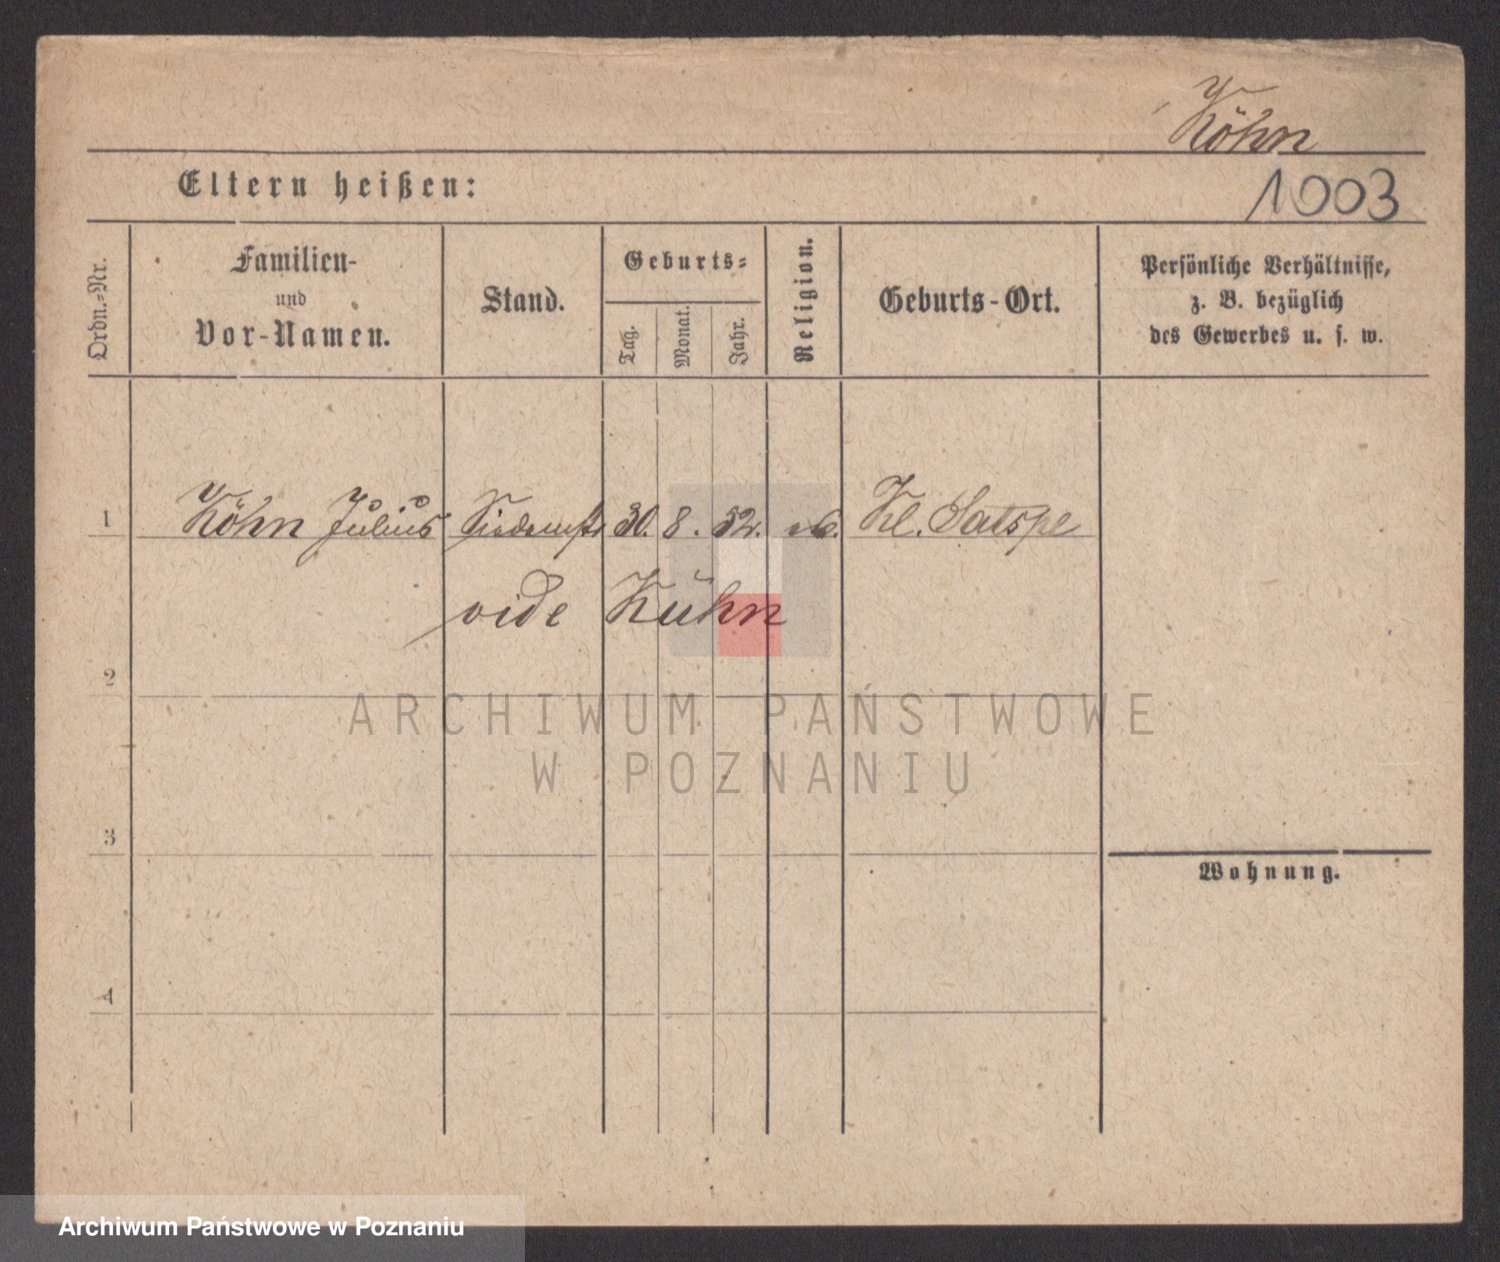 Köhn
Eltern heißen:
1003
Ordn.-Nr.
Familien-
und
Vor-Namen.
Stand.
Geburts-
Tag.
Monat.
Jahr.
Religion.
Geburts-Ort.
Persönliche Verhältnisse,
z. B. bezüglich
des Gewerbes u. s. w.
1 Köhn Julius 30. 8. 52. Kl. Satspe
vide Kühn
2
ARCHIWUM PAŃSTWOWE
W POZNANIU
3
Wohnung.
4
Archiwum Państwowe w Poznaniu